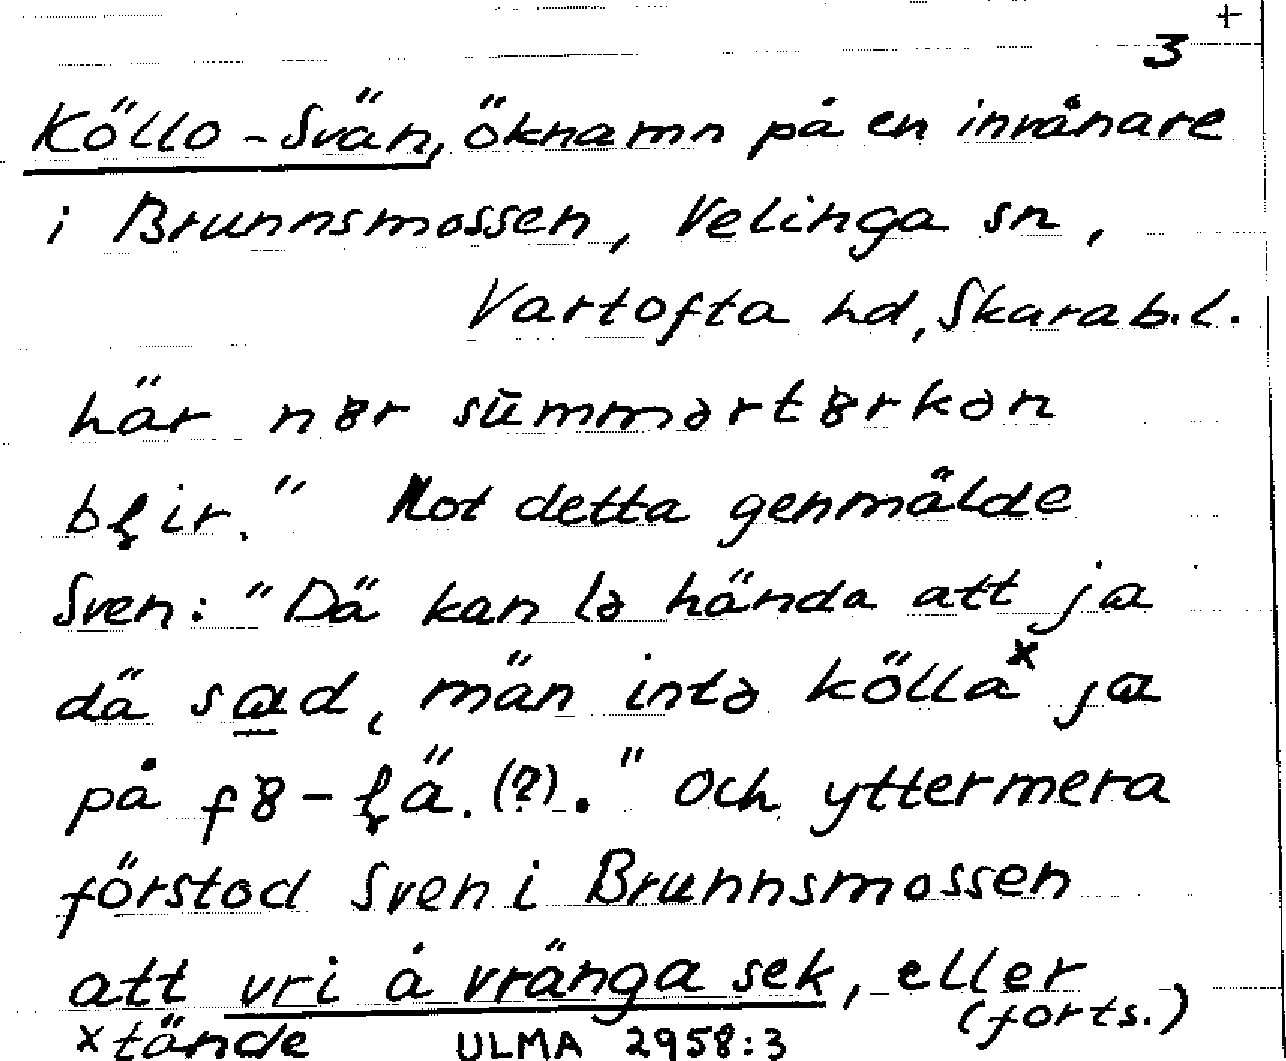 +
3
Köllo-Svän, öknamn på en invånare
i Brunnsmossen, Velinga sn,
Vartofta hd, Skarab.l.
här nȣr sūmmərtȣrkən
bļir." Mot detta genmälde
Sven: "Dä kan lə hända att ja
dä sad, män intə kölla x ja
på fȣ-ļä.(?)." Och yttermera
förstod Sven i Brunnsmossen
att vri å vränga sek, eller
(forts.)
x tände ULMA 2958:3